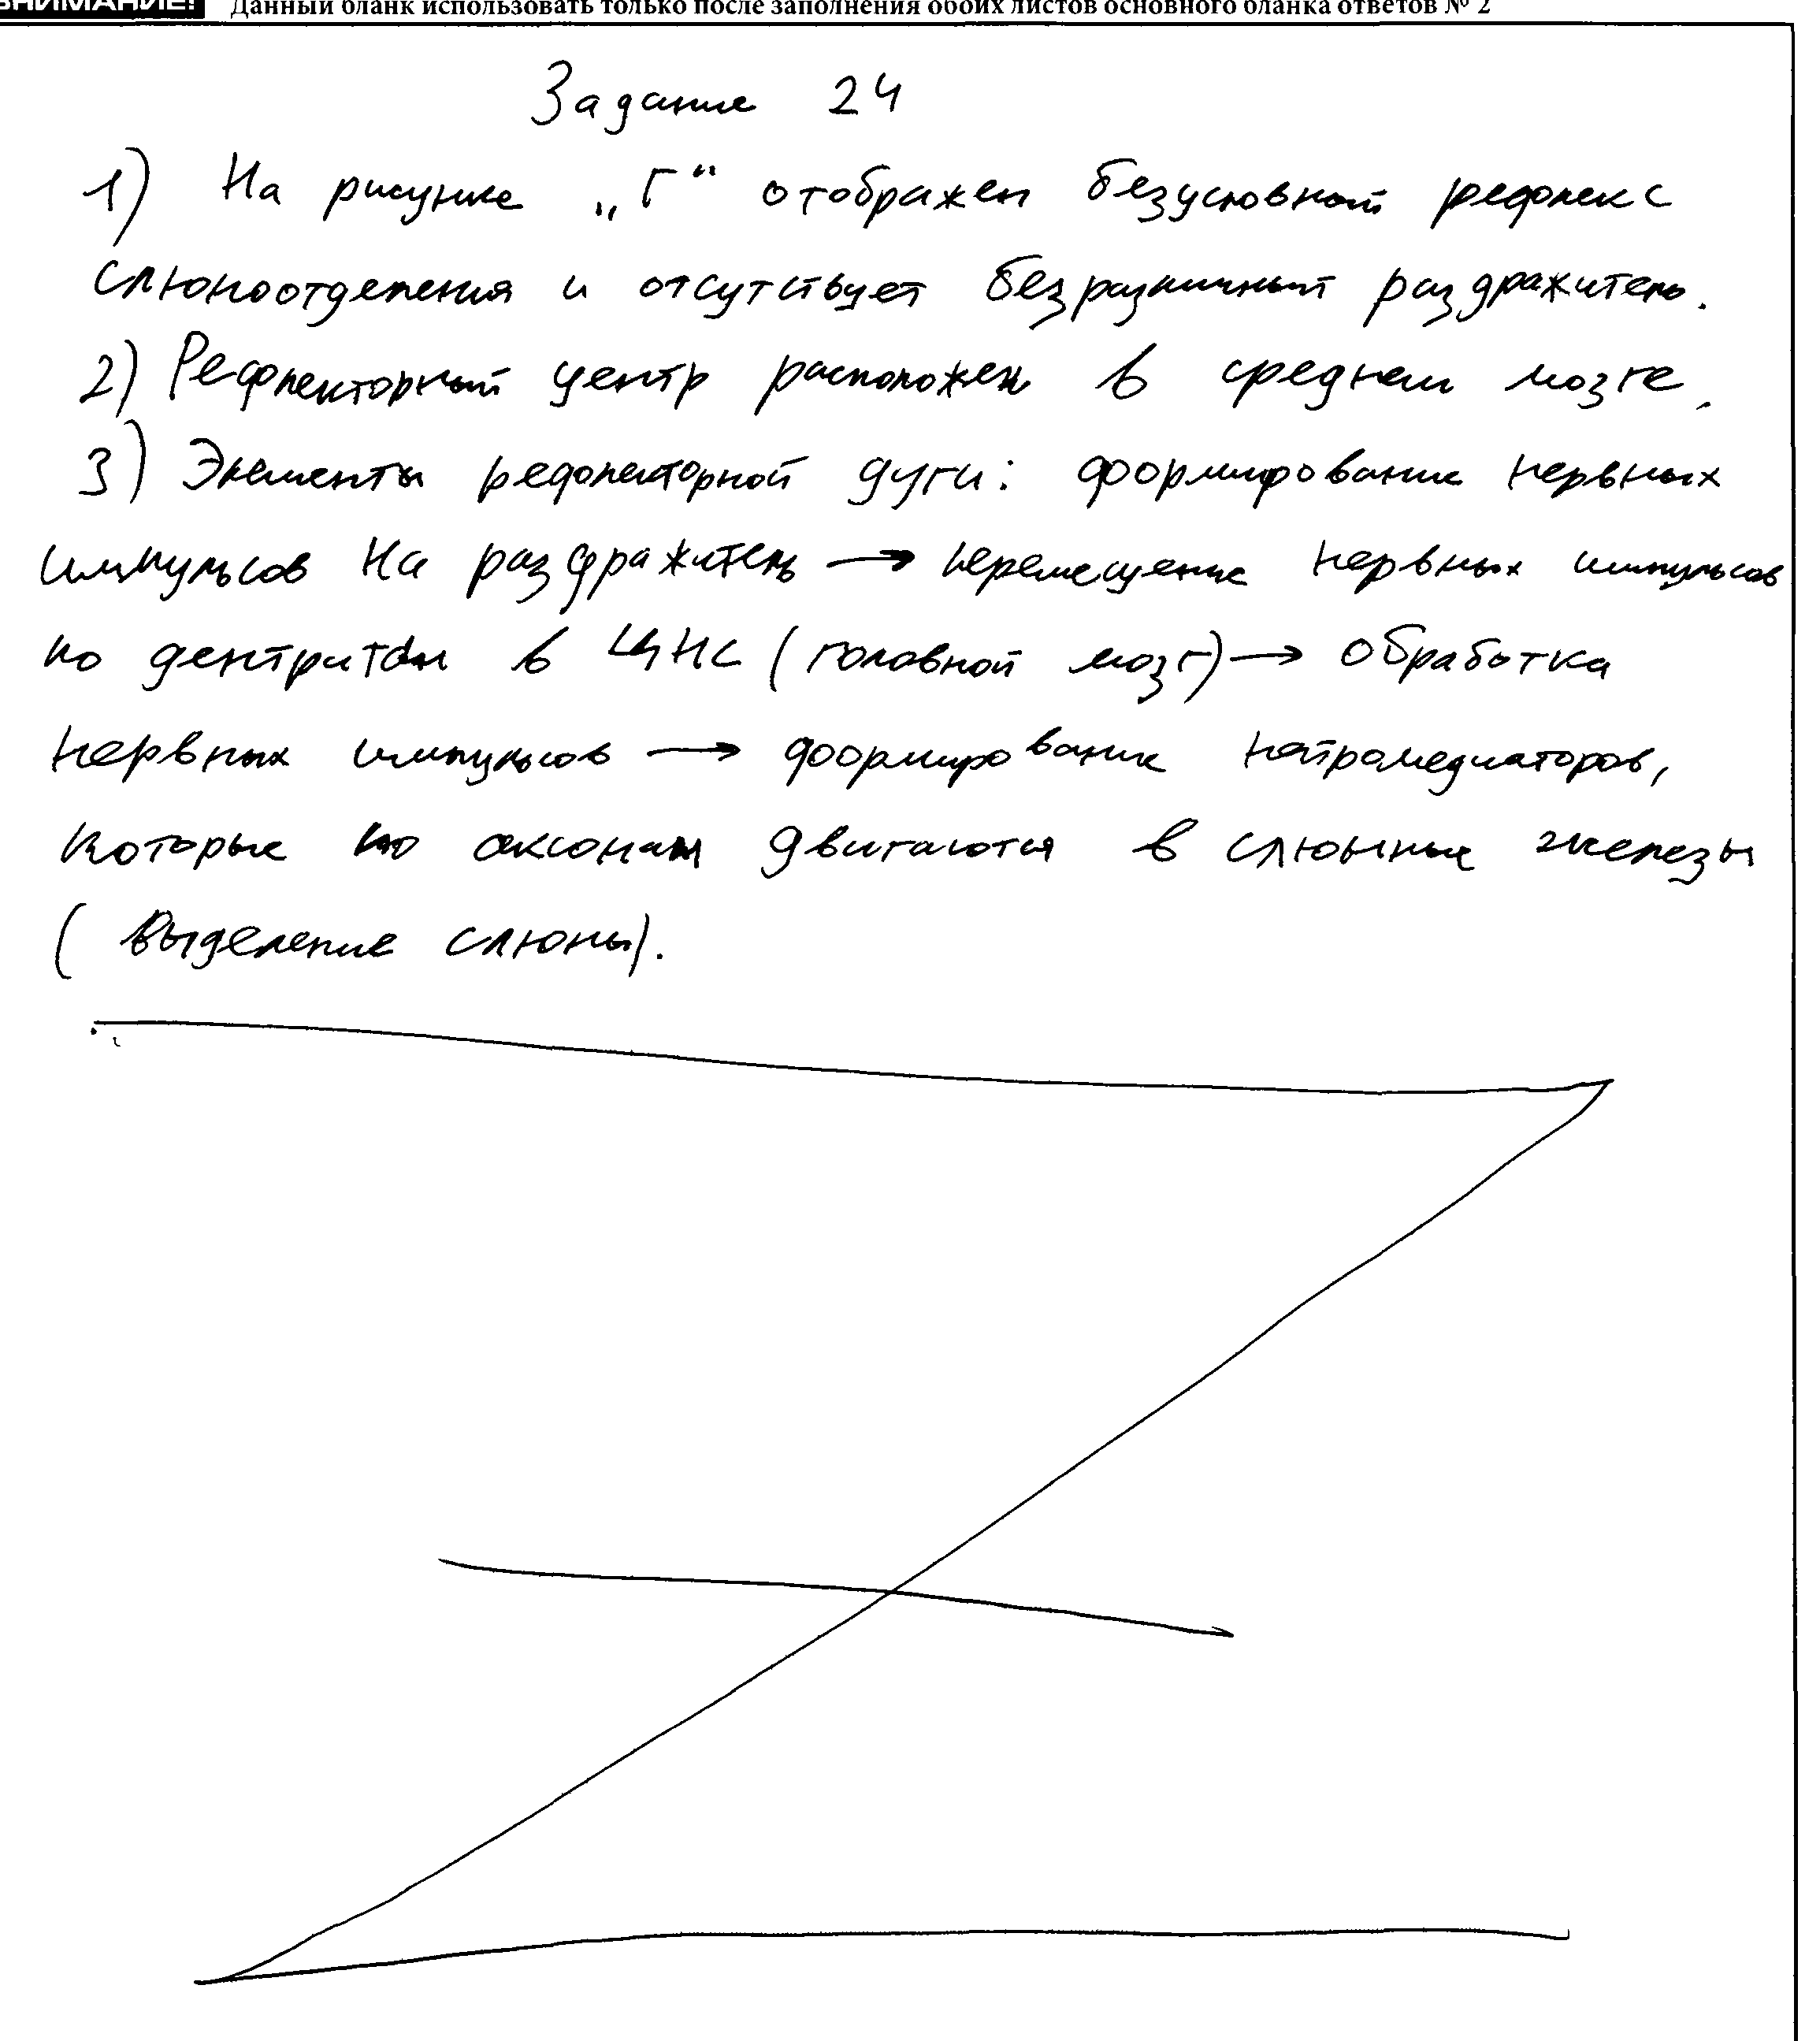 ВНИМАНИЕ! Данный бланк использовать только после заполнения обоих листов основного бланка ответов № 2
Задание 24
1) На рисунке „Г“ отображен безусловный рефлекс
слюноотделения и отсутствует безразличный раздражитель.
2) Рефлекторный центр расположен в среднем мозге.
3) Элементы рефлекторной дуги: формирование нервных
импульсов на раздражитель → перемещение нервных импульсов
по дентритам в ЦНС (головной мозг) → обработка
нервных импульсов → формирование нейромедиаторов,
которые по аксонам двигаются в слюнные железы
(выделение слюны).